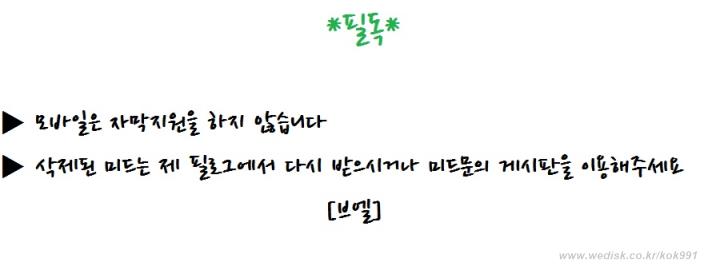 *필독*
▶ 모바일은 자막지원을 하지 않습니다
▶ 삭제된 미드는 제 필로그에서 다시 받으시거나 미드문의 게시판을 이용해주세요
[브엘]
www.wedisk.co.kr/kok991